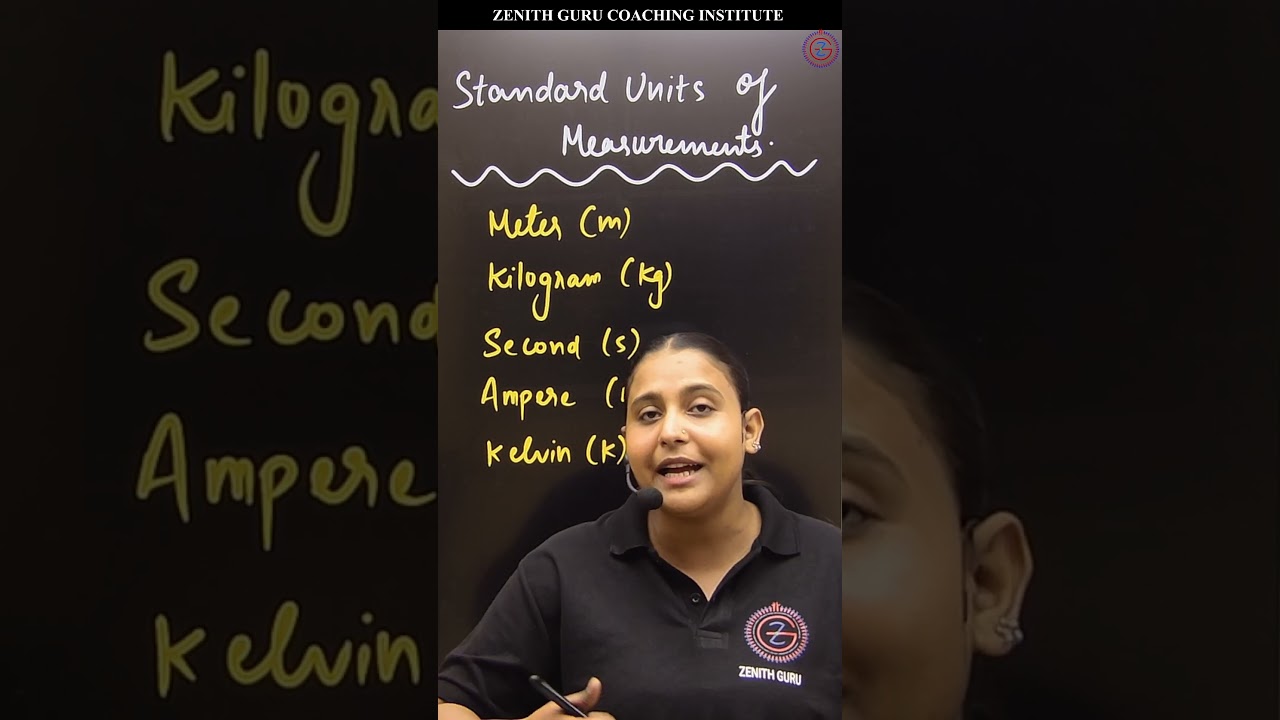 ZENITH GURU COACHING INSTITUTE
Standard Units of
Measurements.
Meter (m)
Kilogram (kg)
Second (s)
Ampere
Kelvin (K)
ZENITH GURU